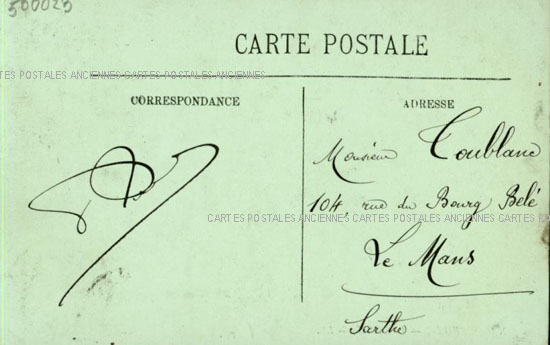 500023
CARTE POSTALE
CARTES POSTALES ANCIENNES CARTES POSTALES ANCIENNES
CORRESPONDANCE
ADRESSE
Monsieur Toublanc
104, rue du Bourg Belé
CARTES POSTALES ANCIENNES CARTES POSTALES ANCIENNES CARTES
Le Mans
Sarthe